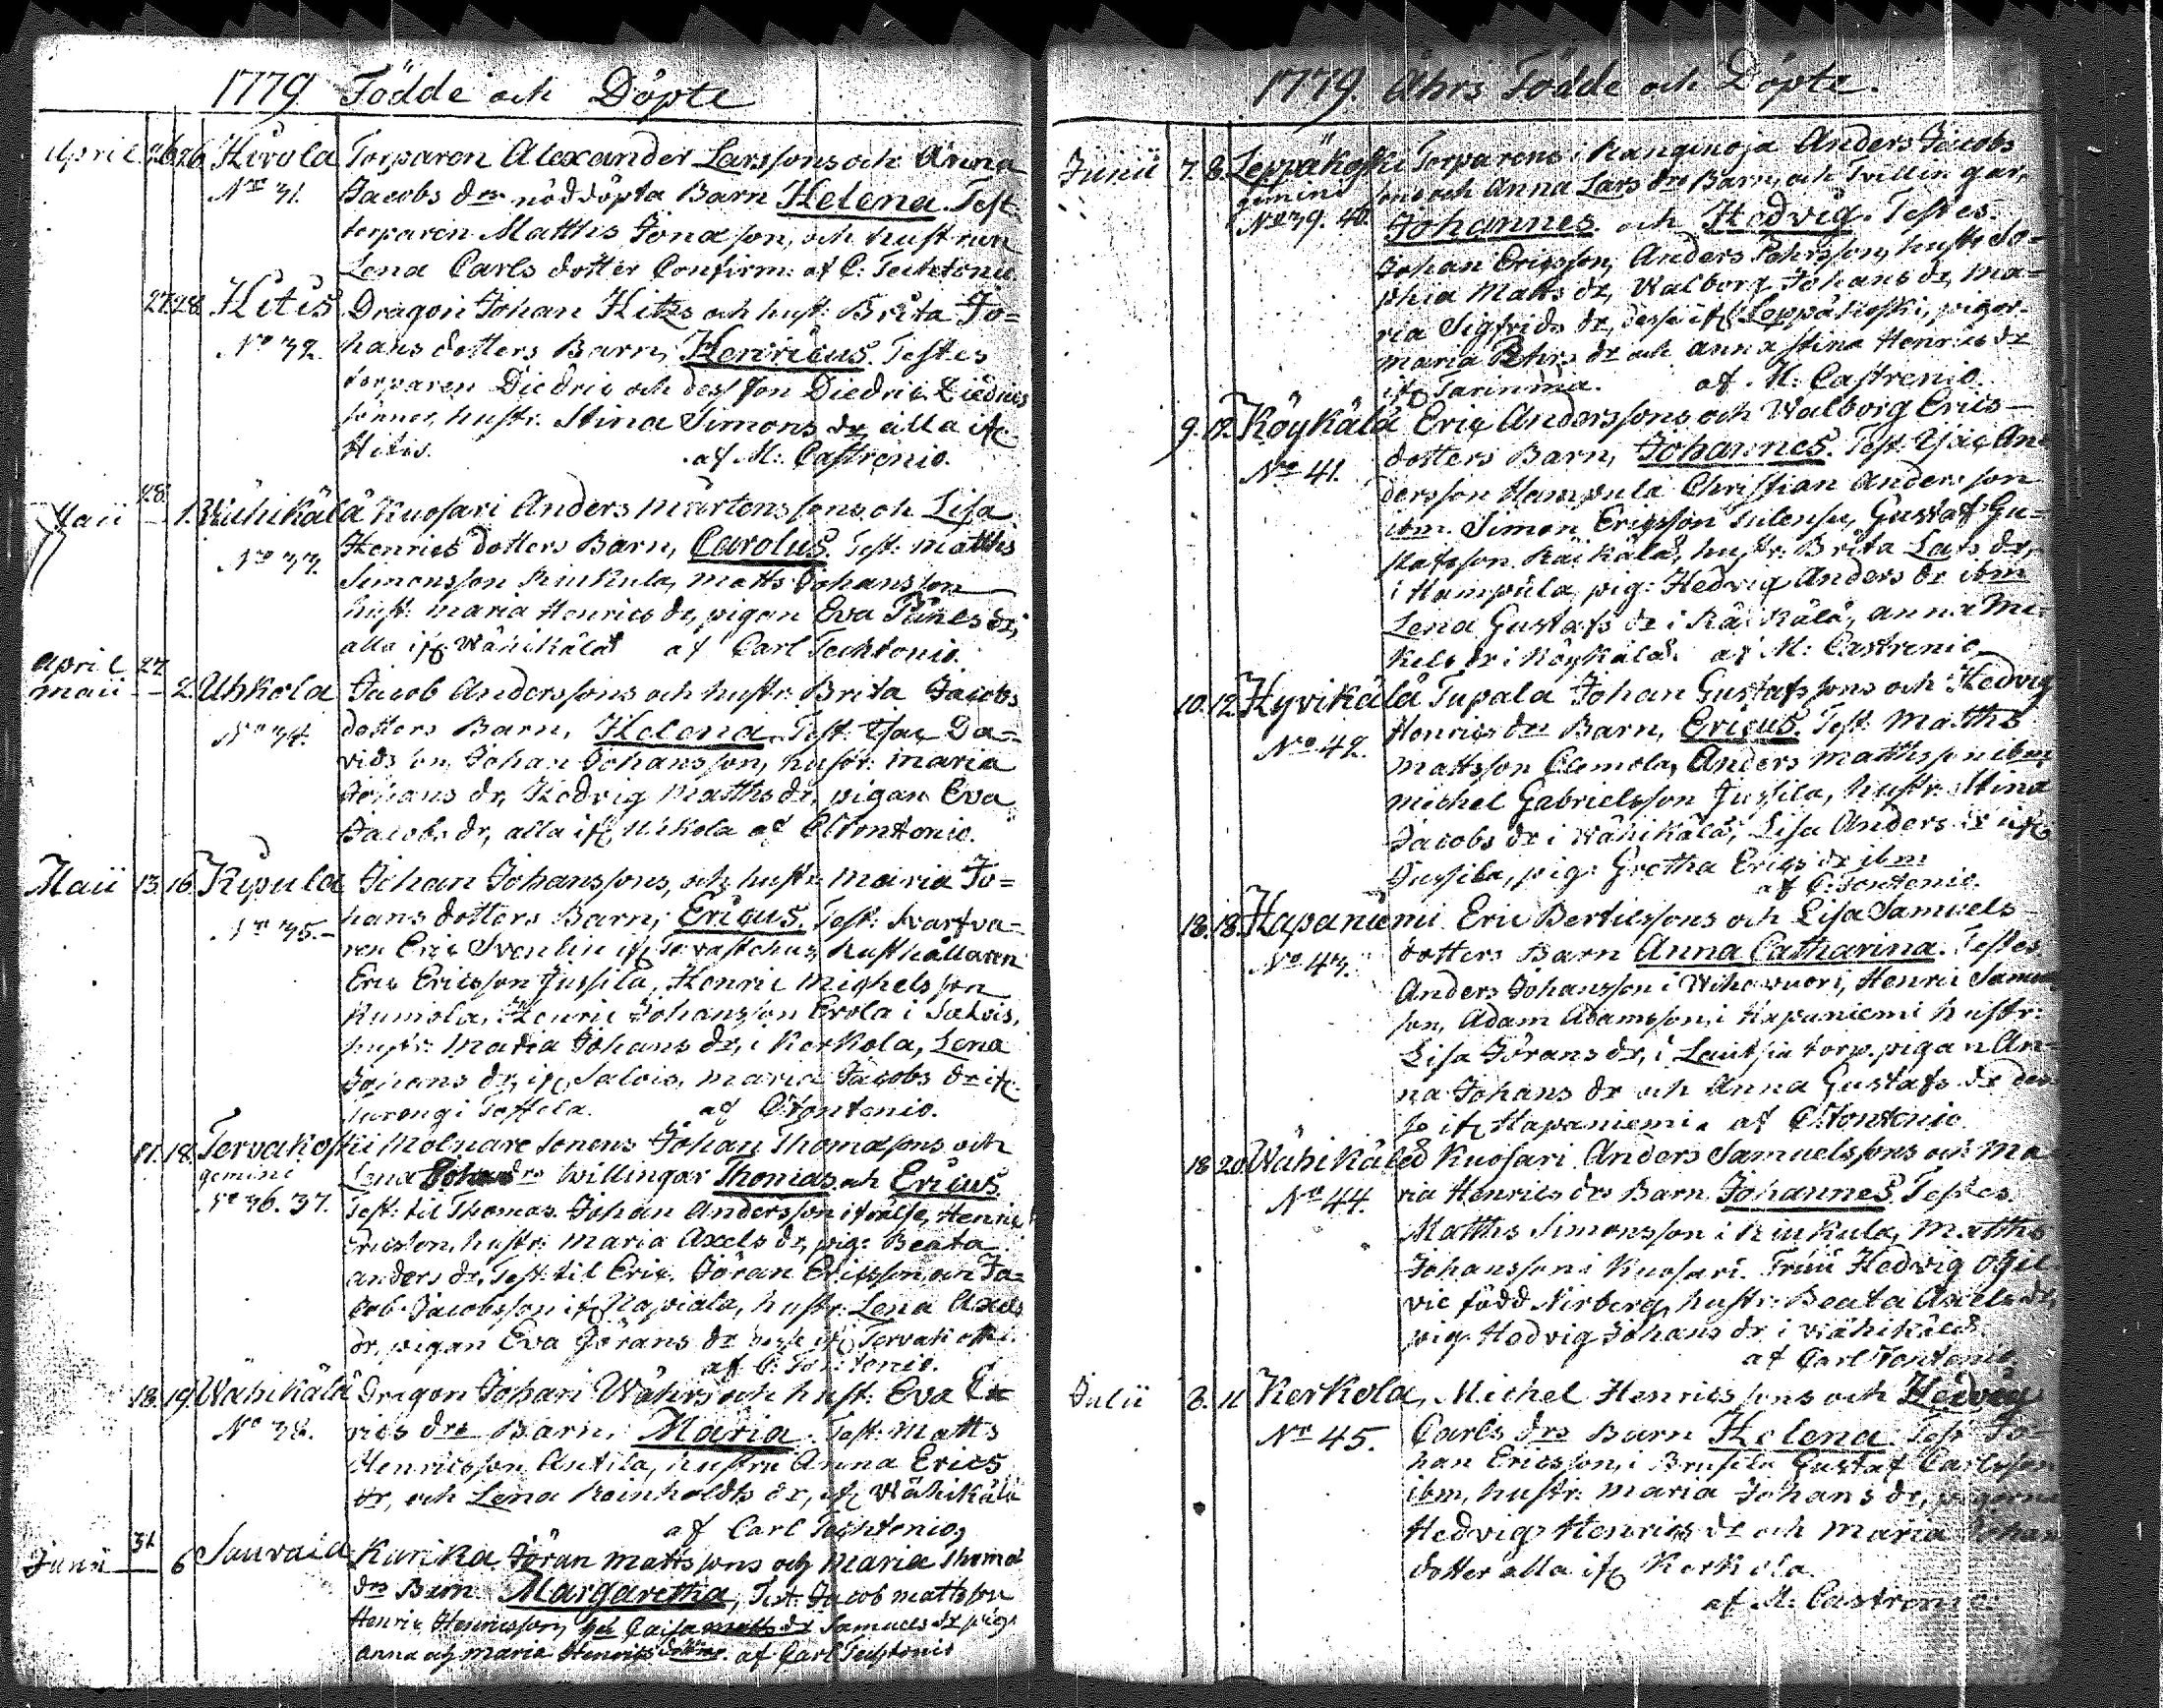 1779 Födde och Döpte
April 26 26 Hirola Torparen Alexander Larssons och Anna
No 31. Jacobs drs nöddöpta Barn Helena. Test.
torparen Matths Jonason, och hustrun
Lena Carls dotter Confirm: af C:
27 28. Hitis Dragon Johan Hitzs och hust: Brita Jo=
No 32. hans dotters Barn, Henricus. Testes
torparen Diedric och dess son Diedric Diedrics
sönner, hustr. Stina Simons dr alla ifr
Hitis. af M: Castrenio.
28
Maii — 1. Wähikälä Kuosari Anders Mårtenssons och Lisa
No 33. Henrics dotters Barn, Carolus. Test: Matths
Simonsson Rinkula, Matts Johansson
hust: Maria Henrics dr, pigan Eva
alla ifr Wähikälä af Carl
April 27
Maii — 2. Uhkola Jacob Anderssons och hustr: Brita Jacobs
No 34. dotters Barn, Helena. Test: Isac Da=
vidsson, Johan Johansson, hustr: Maria
Johans dr, Hedvig Matths dr, pigan Eva
Jacobs dr, alla ifr Uhkola af C
Maii 13. 16. Kipula Johan Johanssons, och hustr: Maria Jo=
No 35. hans dotters Barn, Ericus. Test: Svarfva=
ren Eric Svenlin ifr Tavastehus, husthållaren
Eric Ericsson Jussila, Henric Michelsson
Kumola, Henric Johansson Erola i
hustr: Maria Johans dr, i Kerkola, Lena
Johans dr, ifr Salois, Maria Jacobs dr ifr
Turengi Toffela. af C:
17. 18. Tervakoski Molnare sonens Johan Thomasons och
gemini Lena drs twillingar Thomas och Ericus.
No 36. 37. Test: til Thomas. Johan Andersson Henric
Ericsson, hustr: Maria Axels dr, pig: Beata
Anders dr. Test: til Eric. Jöran Ericsson och Ja=
cob Jacobsson ifr Napiala, hustr: Lena Axels
dr, pigan Eva Görans dr desse ifr Tervakoski.
af C:
18. 19. Wähikälä Dragon Johan Wåhrs och hust: Eva En
No 38. rics drs Barn, Maria. Test: Matts
Henricsson Antila, hustru Anna Erics
dr, och Lena Reinholdts dr, ifr Wähikälä
af Carl
31
Junii — 6 Sauvala Karika Jöran Mattssons och Maria Thomæ
drs Barn Margaretha, Test: Jacob Mattsson
Henric Henricsson, Caisa Samuels dr pig:
Anna och Maria Henrics döttrar. af Carl
1779. Åhrs Födde och Döpte.
Junii 7. 8. Leppäkoski Torparens i Kanginoja Anders Jacobs
gemini sons och Anna Lars drs Barn, och Tvillingar,
No 39. 40. Johannes och Hedvig. Testes.
Johan Ericsson, Anders Pehrsson, hustr: So=
phia Matts dr, Walborg Johans dr, Ma=
ria Sigfrids dr, desse ifr Leppäkoski, pigor.
Maria Pehrs dr och Anna Stina Henrics dr
ifr Tarinmaa. af M: Castrenio.
9. 12. Köykälä Eric Anderssons och Walborg Erics
No 41. dotters Barn, Johannes. Test: Isac An=
dersson Hampula Christian Andersson
ibm. Simon Ericsson Gustaf Gu=
stafsson Räikälä, hustr: Brita Lars dr,
i Hampula, pig: Hedvig Anders dr ibm
Lena Gustafs dr i Räikälä, Anna Mi=
kels dr i Köykälä. af M: Castrenio
10. 12. Hyvikälä Tupala Johan Gustafssons och Hedvig
No 42. Henrics drs Barn, Ericus. Test: Matths
Mattsson Clemola, Anders Matthsson ibm
Michel Gabrielsson Jussila, hustr: Stina
Jacobs dr i Wähikälä, Lisa Anders dr ifr
Jussila, pig: Gretha Erics dr ibm
af C:
18. 18. Hapaniemi Eric Bertilssons och Lisa Samuels
No 43. dotters Barn Anna Catharina. Testes
Anders Johansson i Wihavuori, Henric Samuel
son, Adam Adamsson, i Hapaniemi hustr:
Lisa Jörans dr, i Lautsia torp. pigan An=
na Johans dr och Anna Gustafs dr des
se ifr Hapaniemi. af C
18 20. Wähikälä Kuosari Anders Samuelssons och Ma
No 44. ria Henrics drs Barn Johannes. Testes.
Matths Simonsson i Rinkula, Matths
Johansson i Kuosari. Fruu Hedvig Ogil
vie född Nirberg, hustr: Beata Axels dr,
pig: Hedvig Johans dr i Wähikälä.
af Carl
Julii 8. 11 Kerkola, Michel Henricssons och Hedvig
No 45. Carls drs Barn Helena Test: Jo=
han Ericsson, i Brusila Gustaf Carlsson
ibm, hustr: Maria Johans dr, pigorna
Hedvig Henrics dr och Maria Johans
dotter alla ifr Kerkola.
af M. Castrenio